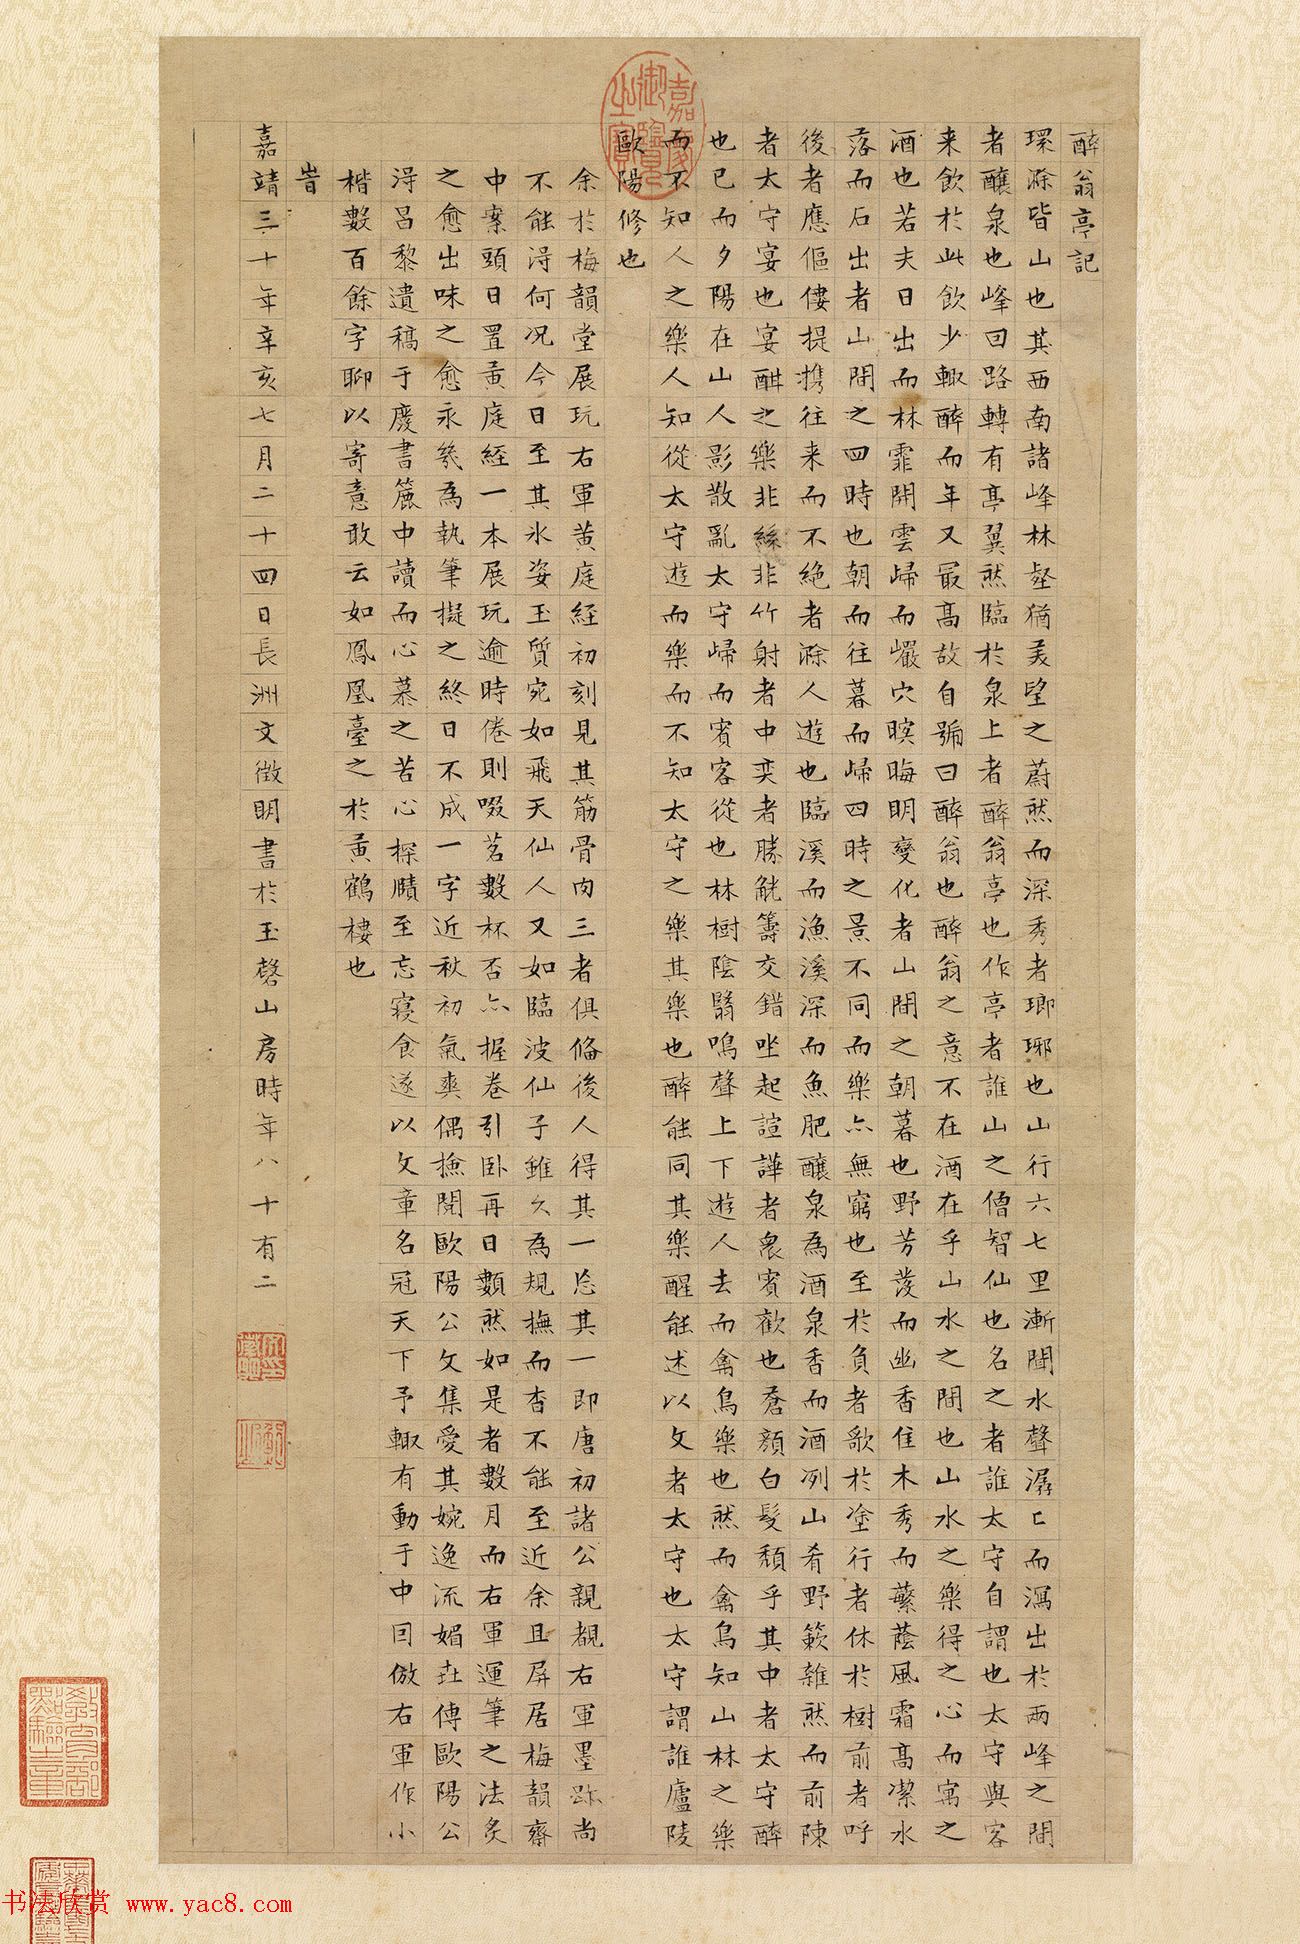 醉翁亭記
環滁皆山也其西南諸峰林壑猶美望之蔚然而深秀者瑯琊也山行六七里漸聞水聲潺〻而瀉出於兩峰之間
者釀泉也峰回路轉有亭翼然臨於泉上者醉翁亭也作亭者誰山之僧智仙也名之者誰太守自謂也太守與客
来飲於此飲少輒醉而年又最高故自號曰醉翁也醉翁之意不在酒在乎山水之間也山水之樂得之心而寓之
酒也若夫日出而林霏開雲歸而巖穴暝晦明變化者山間之朝暮也野芳發而幽香佳木秀而蘩蔭風霜高潔水
落而石出者山間之四時也朝而往暮而歸四時之景不同而樂亦無窮也至於負者歌於塗行者休於樹前者呼
後者應傴僂提攜往来而不絶者滁人遊也臨溪而漁溪深而魚肥釀泉為酒泉香而酒冽山肴野蔌雜然而前陳
者太守宴也宴酣之樂非絲非竹射者中奕者勝觥籌交錯坐起諠譁者衆賓歡也蒼顔白髮頹乎其中者太守醉
也已而夕陽在山人影散亂太守歸而賓客從也林樹陰翳鳴聲上下遊人去而禽鳥樂也然而禽鳥知山林之樂
而不知人之樂人知從太守遊而樂而不知太守之樂其樂也醉能同其樂醒能述以文者太守也太守謂誰廬陵
歐陽修也
余於梅韻堂展玩右軍黄庭經初刻見其筋骨肉三者俱俻後人得其一忘其一即唐初諸公親覩右軍墨跡尚
不能淂何况今日至其氷姿玉質宛如飛天仙人又如臨波仙子雖久為規撫而杳不能至近余且屏居梅韻齋
中案頭日置黄庭經一本展玩逾時倦則啜茗數杯否亦握卷引卧再日數然如是者數月而右軍運筆之法炙
之愈出味之愈永幾為執筆擬之終日不成一字近秋初氣爽偶撿閱歐陽公文集愛其婉逸流媚丗傳歐陽公
淂昌黎遺稿于廢書簏中讀而心慕之苦心探賾至忘寝食遂以文章名冠天下予輒有動于中因倣右軍作小
楷數百餘字聊以寄意敢云如鳳凰臺之於黄鶴樓也
旹
嘉靖三十年辛亥七月二十四日長洲文徵明書於玉磬山房時年八十有二
嘉慶御覽之寶
书法欣赏 www.yac8.com